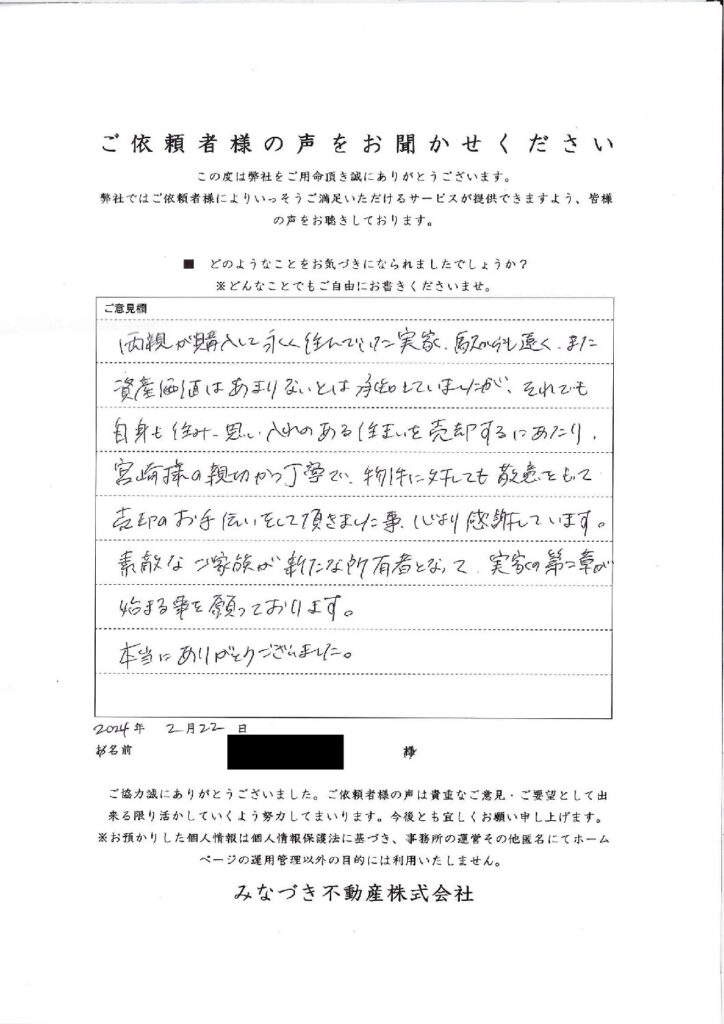 ご依頼者様の声をお聞かせください
この度は弊社をご用命頂き誠にありがとうございます。
弊社ではご依頼者様によりいっそうご満足いただけるサービスが提供できますよう、皆様
の声をお聴きしております。
■ どのようなことをお気づきになられましたでしょうか？
※どんなことでもご自由にお書きくださいませ。
ご意見欄
両親が購入して永く住んでいた実家、駅からも遠く、また
資産価値はあまりないとは承知していましたが、それでも
自身も住み、思い入れのある住まいを売却するにあたり、
宮崎様の親切かつ丁寧で、物件に対しても敬意をもって
売却のお手伝いをして頂きました事、心より感謝しています。
素敵なご家族が新たな所有者となって、実家の第二章が
始まる事を願っております。
本当にありがとうございました。
2024年 2月22日
お名前 様
ご協力誠にありがとうございました。ご依頼者様の声は貴重なご意見・ご要望として出
来る限り活かしていくよう努力してまいります。今後とも宜しくお願い申し上げます。
※お預かりした個人情報は個人情報保護法に基づき、事務所の運営その他匿名にてホーム
ページの運用管理以外の目的には利用いたしません。
みなづき不動産株式会社